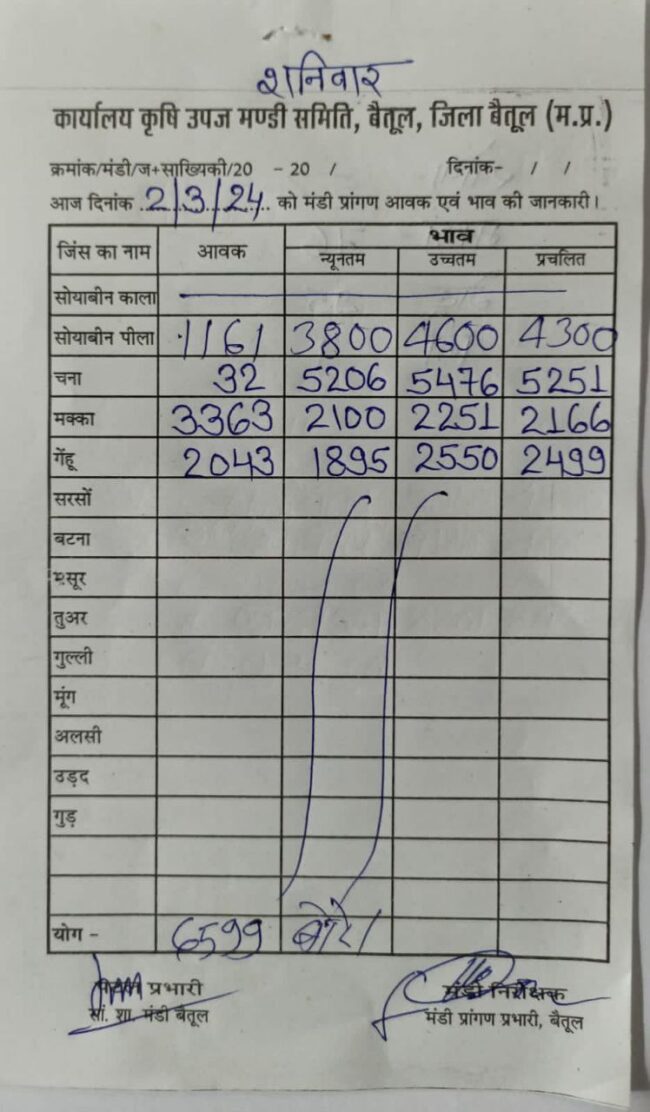 शनिवार
कार्यालय कृषि उपज मण्डी समिति, बैतूल, जिला बैतूल (म.प्र.)
क्रमांक/मंडी/ज+साख्यिकी/20 - 20 / दिनांक- / /
आज दिनांक 2/3/24 को मंडी प्रांगण आवक एवं भाव की जानकारी।
जिंस का नाम आवक भाव
न्यूनतम उच्चतम प्रचलित
सोयाबीन काला
सोयाबीन पीला 1161 3800 4600 4300
चना 32 5206 5476 5251
मक्का 3363 2100 2251 2166
गेंहू 2043 1895 2550 2499
सरसों
बटना
मसूर
तुअर
गुल्ली
मूंग
अलसी
उड़द
गुड़
योग - 6599 बोरे।
प्रभारी मंडी निरीक्षक
सां. शा. मंडी बैतूल मंडी प्रांगण प्रभारी, बैतूल